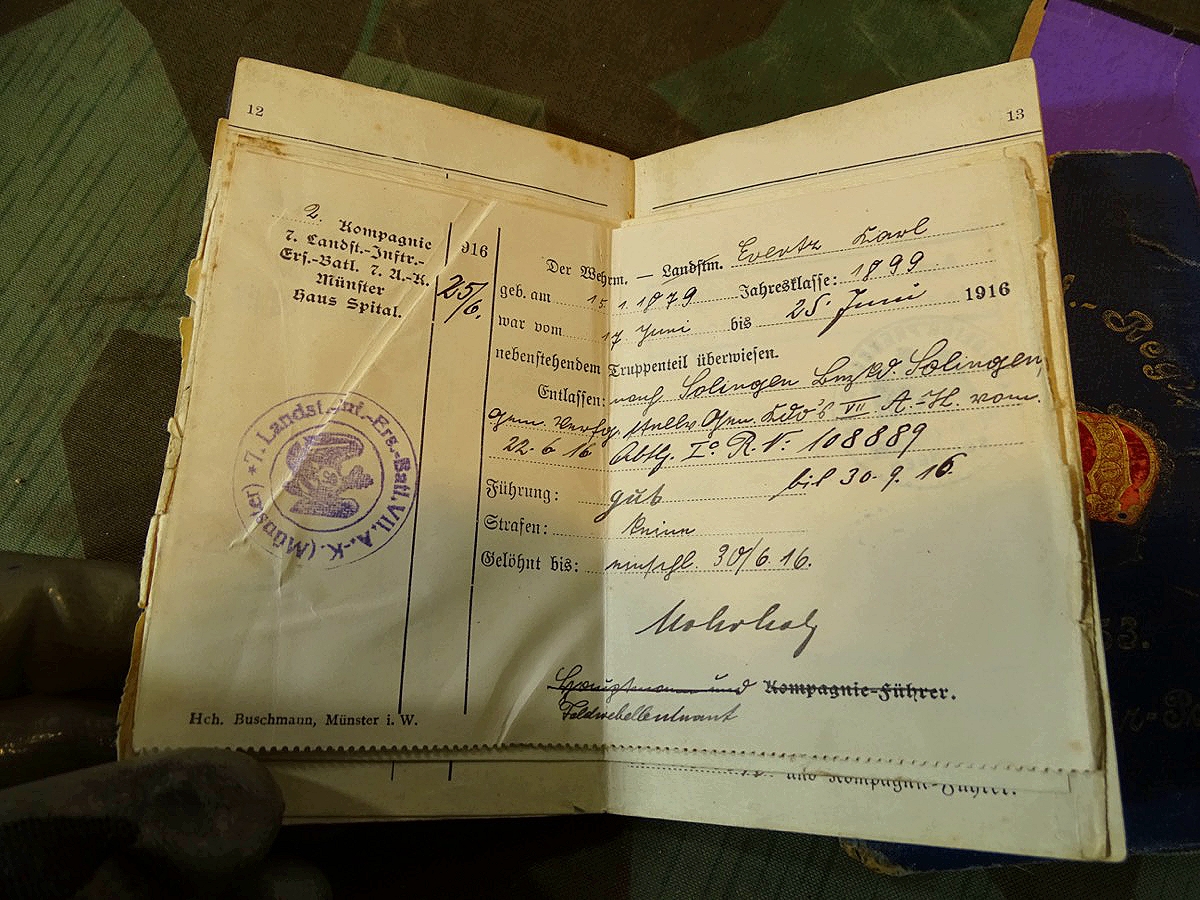 12
13
2. Kompagnie
7. Landst.-Inftr.-
Ers.-Batl. 7. A.-K.
Münster
Haus Spital.
916
25/6.
Der Wehrm. — Landstm. Evertz Karl
geb. am 15.1.1879 Jahresklasse: 1899
war vom 17 Juni bis 25 Juni 1916
nebenstehendem Truppenteil überwiesen.
Entlassen: nach Solingen Bez Kd. Solingen,
gem. Verfg. stellv. Gen. Kdo's VII. A.-K. vom
22. 6 16 Abtlg. Ic R. V. 108889
bis 30. 9. 16
Führung: gut
Strafen: keine
Gelöhnt bis: einschl. 30/6. 16.
Hauptmann und Kompagnie-Führer.
Feldwebelleutnant
Hch. Buschmann, Münster i. W.
und Kompagnie-Führer.
* 7. Landst.-Inf.-Ers.-Batl. VII. A.-K. (Münster)
.-Regi
53.